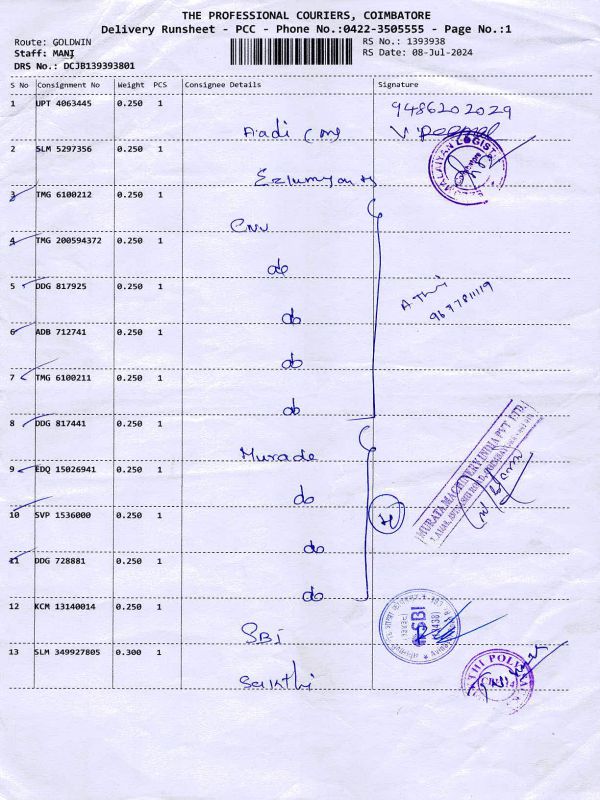 THE PROFESSIONAL COURIERS, COIMBATORE
Delivery Runsheet - PCC - Phone No.:0422-3505555 - Page No.:1
Route: GOLDWIN
RS No.: 1393938
Staff: MANI
RS Date: 08-Jul-2024
DRS No.: DCJB139393801
S No Consignment No Weight PCS Consignee Details Signature
1 UPT 4063445 0.250 1
9486202029
Aadi
2 SLM 5297356 0.250 1
3 TMG 6100212 0.250 1
4 TMG 200594372 0.250 1
do
5 DDG 817925 0.250 1
9677811119
do
6 ADB 712741 0.250 1
do
7 TMG 6100211 0.250 1
do
8 DDG 817441 0.250 1
MURATA MACHINERY INDIA PVT LTD.
Murade
9 EDQ 15026941 0.250 1
do
10 SVP 1536000 0.250 1
do
11 DDG 728881 0.250 1
do
12 KCM 13140014 0.250 1
SBI
SBI
13 SLM 349927805 0.300 1
Sakthi